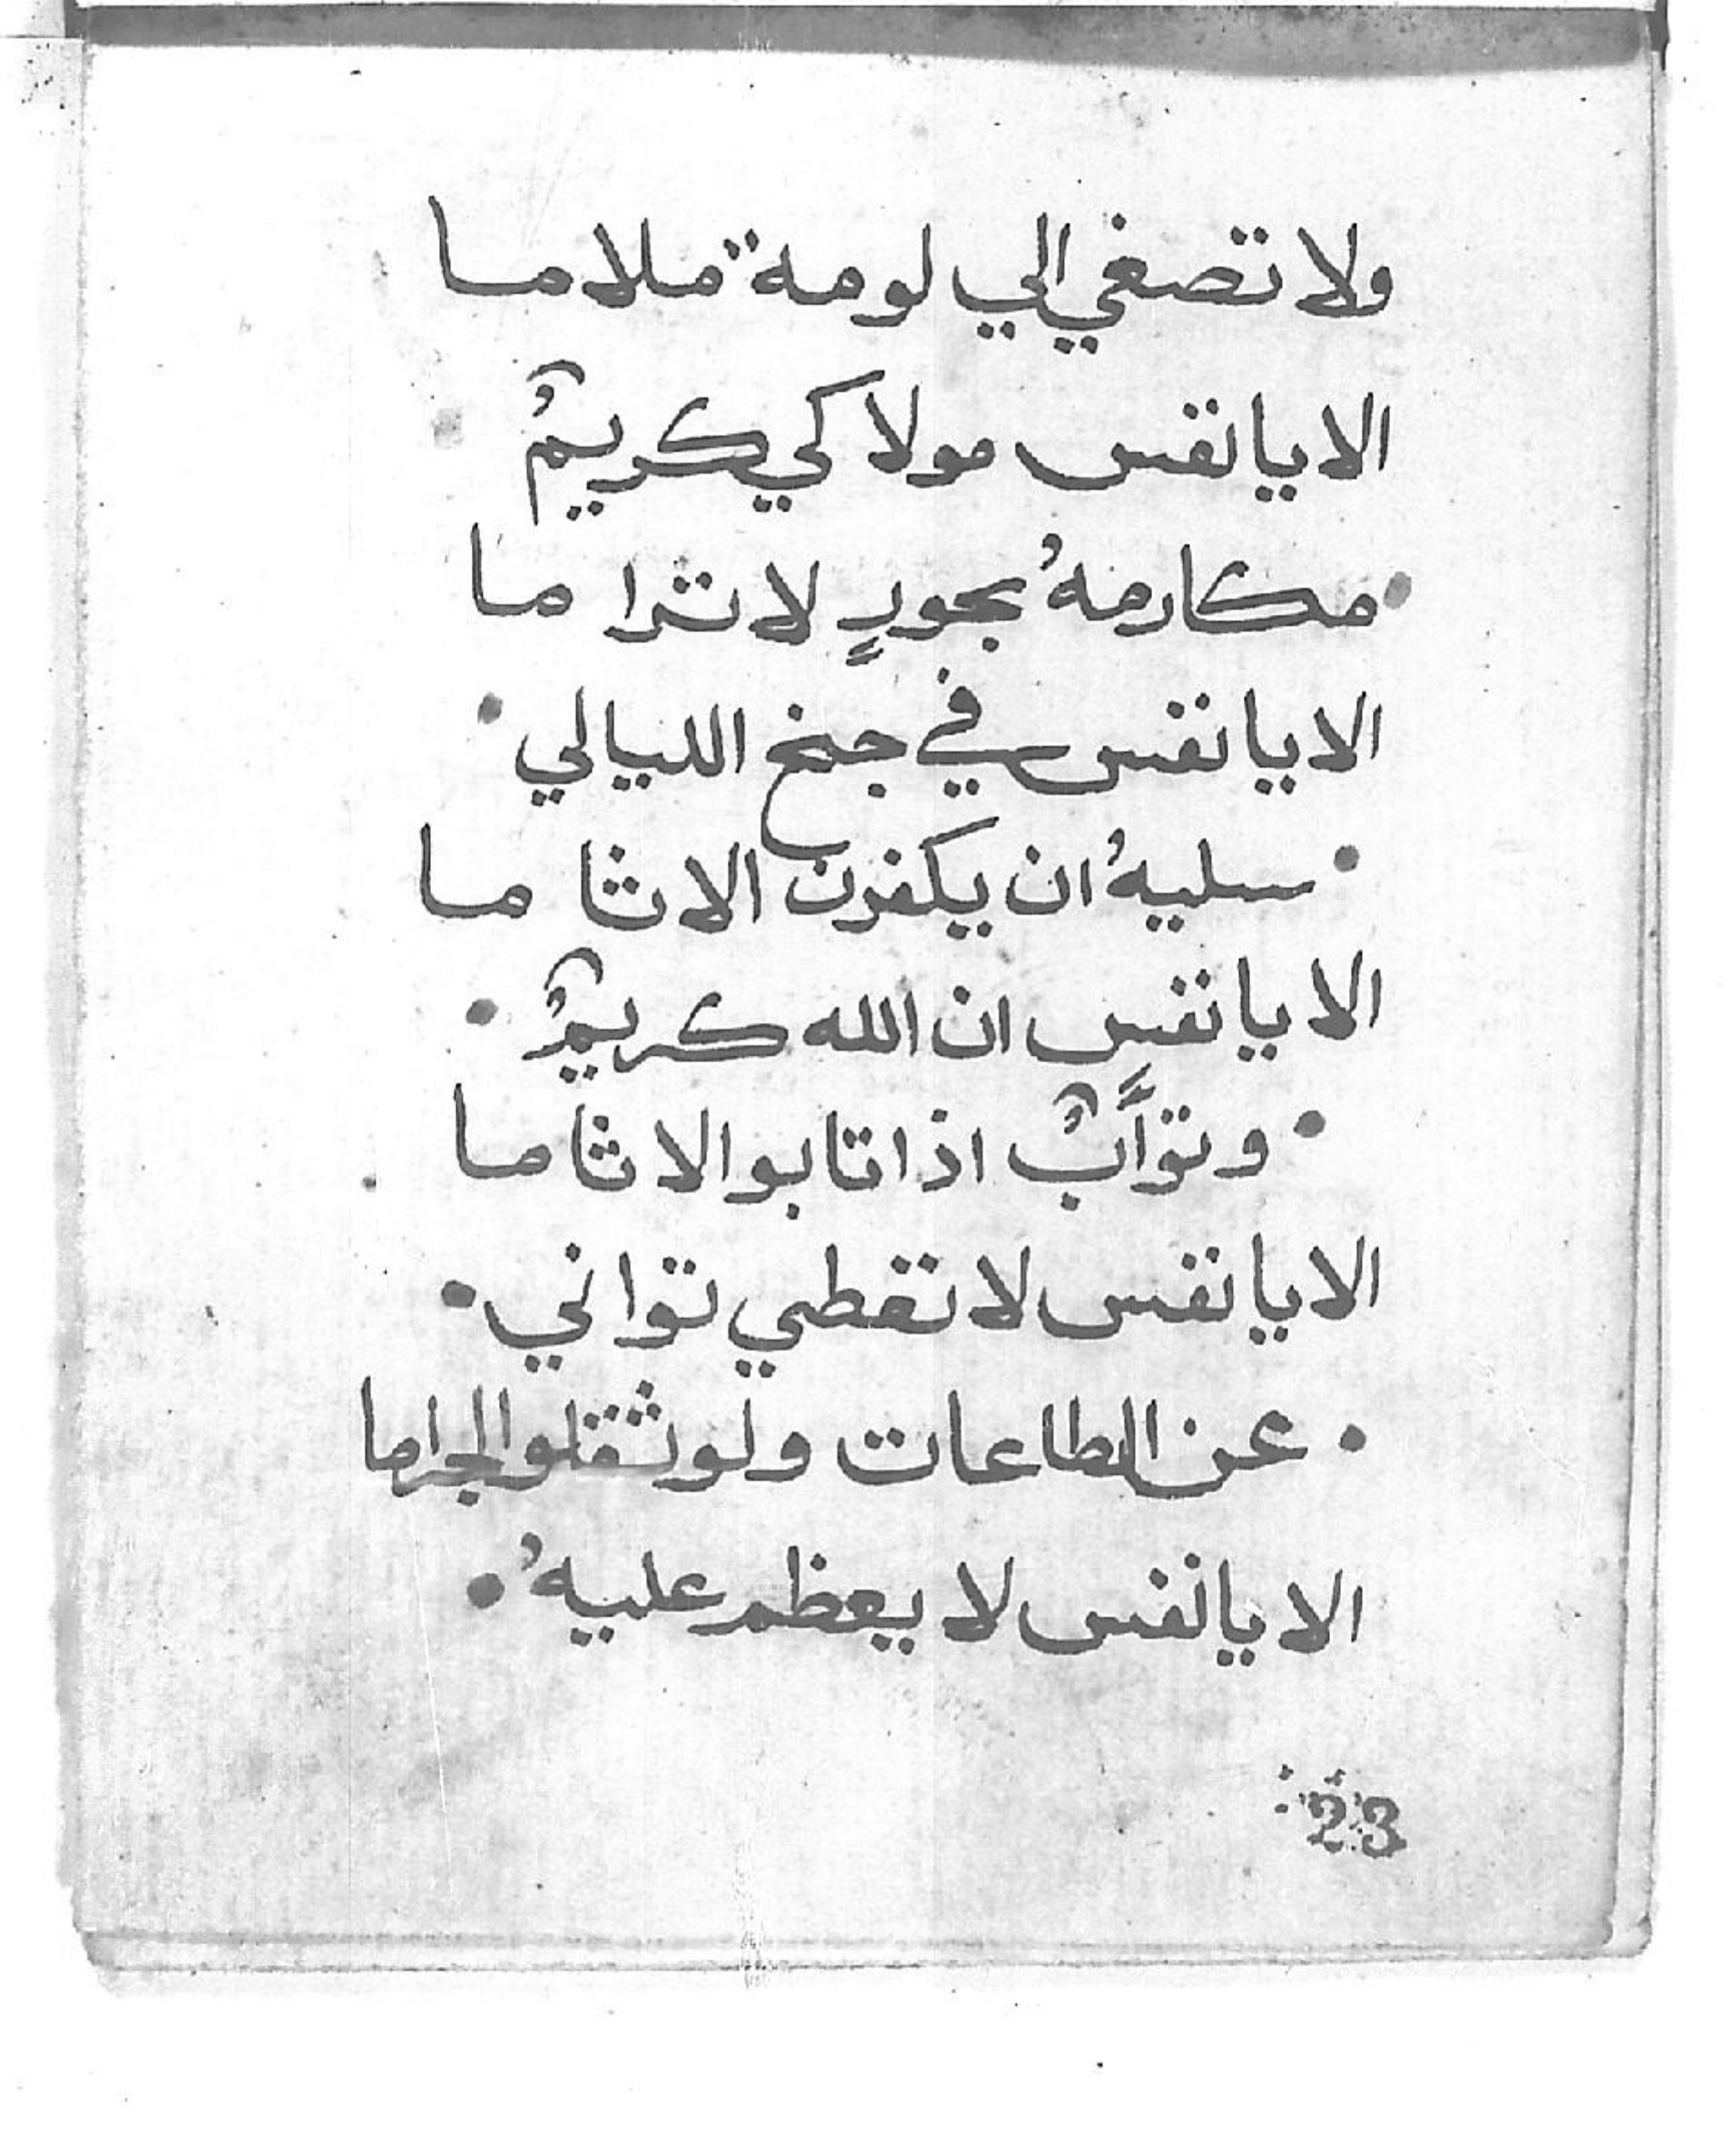 ولا تصغي الي لومة ملاما
الا يا نفس مولاكي كريمٌ
مكارمهُ بجودٍ لا تراما
الا يا نفس في جنح الليالي
سليهُ ان يكفرن الاثاما
الا يا نفس ان الله كريمٌ
وتوَّابٌ اذا تابو الاثاما
الا يا نفس لا تقطي تواني
عن الطاعات ولو ثقلو الجراما
الا يا نفس لا يعظم عليهُ
23